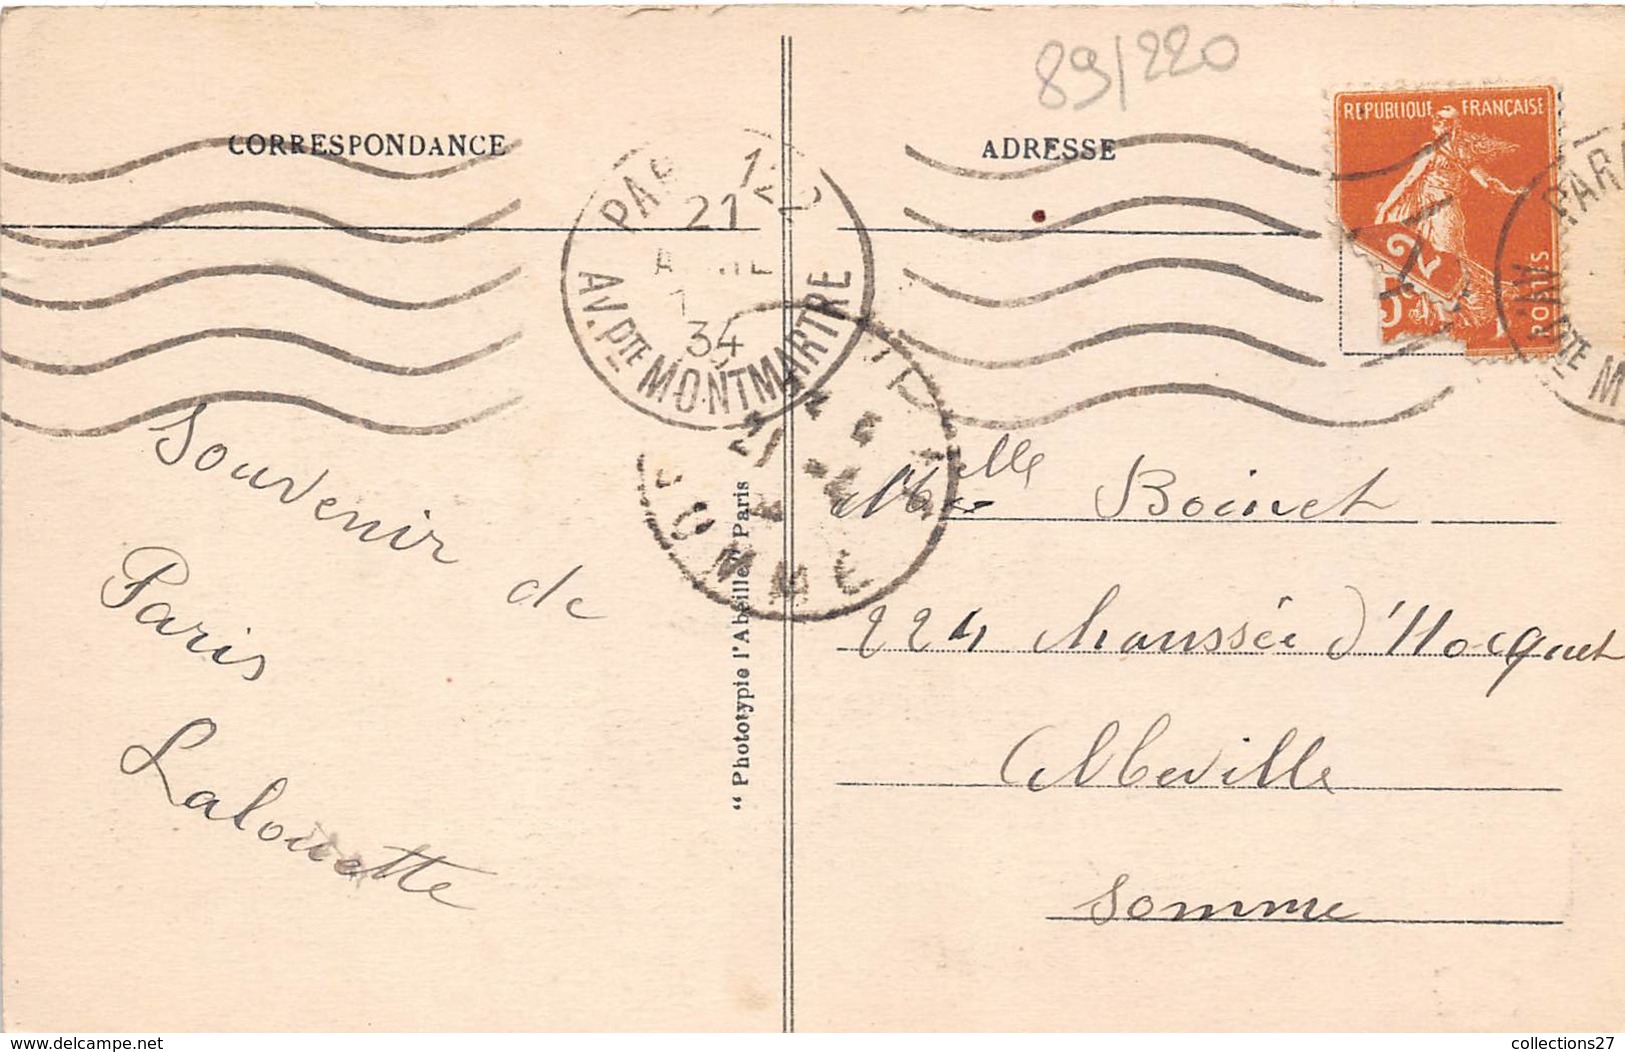 89/220
CORRESPONDANCE
ADRESSE
REPUBLIQUE FRANÇAISE
POSTES
PAR 122
21
34
AV. PTE MONTMARTRE
PAR
AV. PTE M
21 -4
SOMME
Souvenir de
Paris
Lalouette
" Phototypie l'Abeille ", Paris
Melle Boinet
224 Chaussée d'Hocquet
Abbeville
Somme
collections27
www.delcampe.net